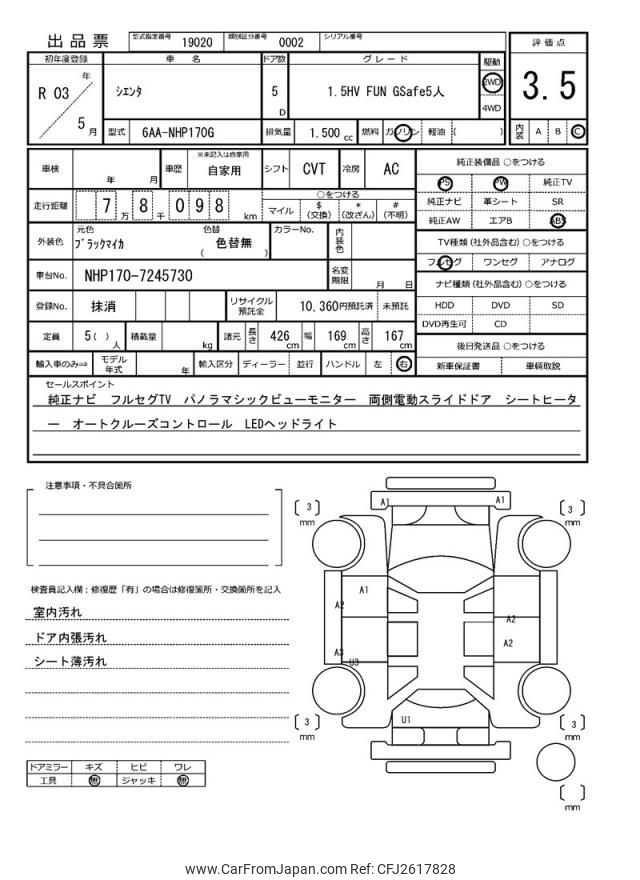 出品票 型式指定番号 19020 類別区分番号 0002 シリアル番号
評価点
3.5
内装 A B C
初年度登録 車名 ドア数 グレード 駆動
R 03 年 5 月
シエンタ 5 D 1.5HV FUN GSafe5人 2WD
4WD
型式 6AA-NHP170G 排気量 1.500 cc 燃料 ガソリン 軽油 ( )
車検 年 月 車歴 ※未記入は自家用 自家用 シフト CVT 冷房 AC
走行距離 7 万 8 千 0 9 8 km ○をつける
マイル $(交換) *(改ざん) #(不明)
外装色 元色 ブラックマイカ 色替 色替無 ( ) カラーNo. 内装色
車台No. NHP170-7245730 名変期限 月 日
登録No. 抹消 リサイクル預託金 10.360円預託済 未預託
定員 5( )人 積載量 kg 諸元 長さ 426 cm 幅 169 cm 高さ 167 cm
輸入車のみ⇒ モデル年式 年 輸入区分 ディーラー 並行 ハンドル 左 右
純正装備品 ○をつける
PS PW 純正TV
純正ナビ 革シート SR
純正AW エアB ABS
TV種類(社外品含む)○をつける
フルセグ ワンセグ アナログ
ナビ種類(社外品含む)○をつける
HDD DVD SD
DVD再生可 CD
後日発送品 ○をつける
新車保証書 車輌取説
セールスポイント
純正ナビ フルセグTV パノラマシックビューモニター 両側電動スライドドア シートヒータ
ー オートクルーズコントロール LEDヘッドライト
注意事項・不具合箇所
検査員記入欄：修復歴「有」の場合は修復箇所・交換箇所を記入
室内汚れ
ドア内張汚れ
シート薄汚れ
ドアミラー キズ ヒビ ワレ
工具 無 ジャッキ 無
3 mm
A1
A1
3 mm
A1
A2
A2
A2
A3
U3
3 mm
U1
3 mm
mm
www.CarFromJapan.com Ref: CFJ2617828